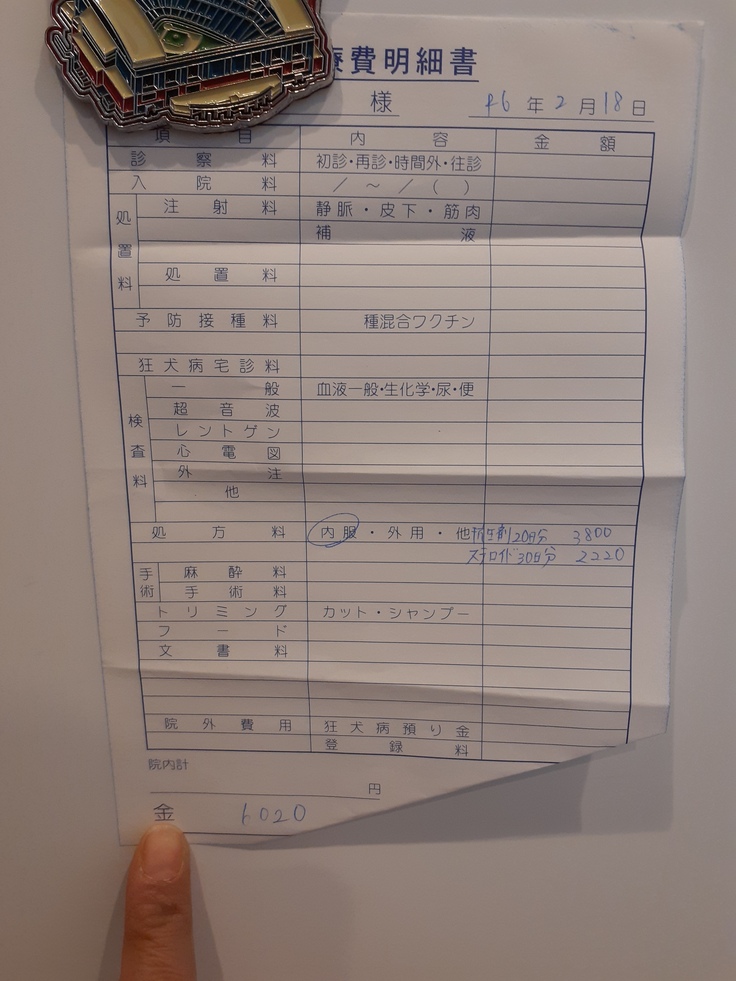 療費明細書
様 R6年2月18日
項目 内容 金額
診察料 初診・再診・時間外・往診
入院料 / ～ / ( )
処置料
注射料 静脈・皮下・筋肉
補液
処置料
予防接種料 種混合ワクチン
狂犬病宅診料
検査料
一般 血液一般・生化学・尿・便
超音波
レントゲン
心電図
外注
他
処方料 内服・外用・他 抗生剤20日分 3800
ステロイド30日分 2220
手術
麻酔料
手術料
トリミング カット・シャンプー
フード
文書料
院外費用 狂犬病預り金
登録料
院内計
円
金 6020